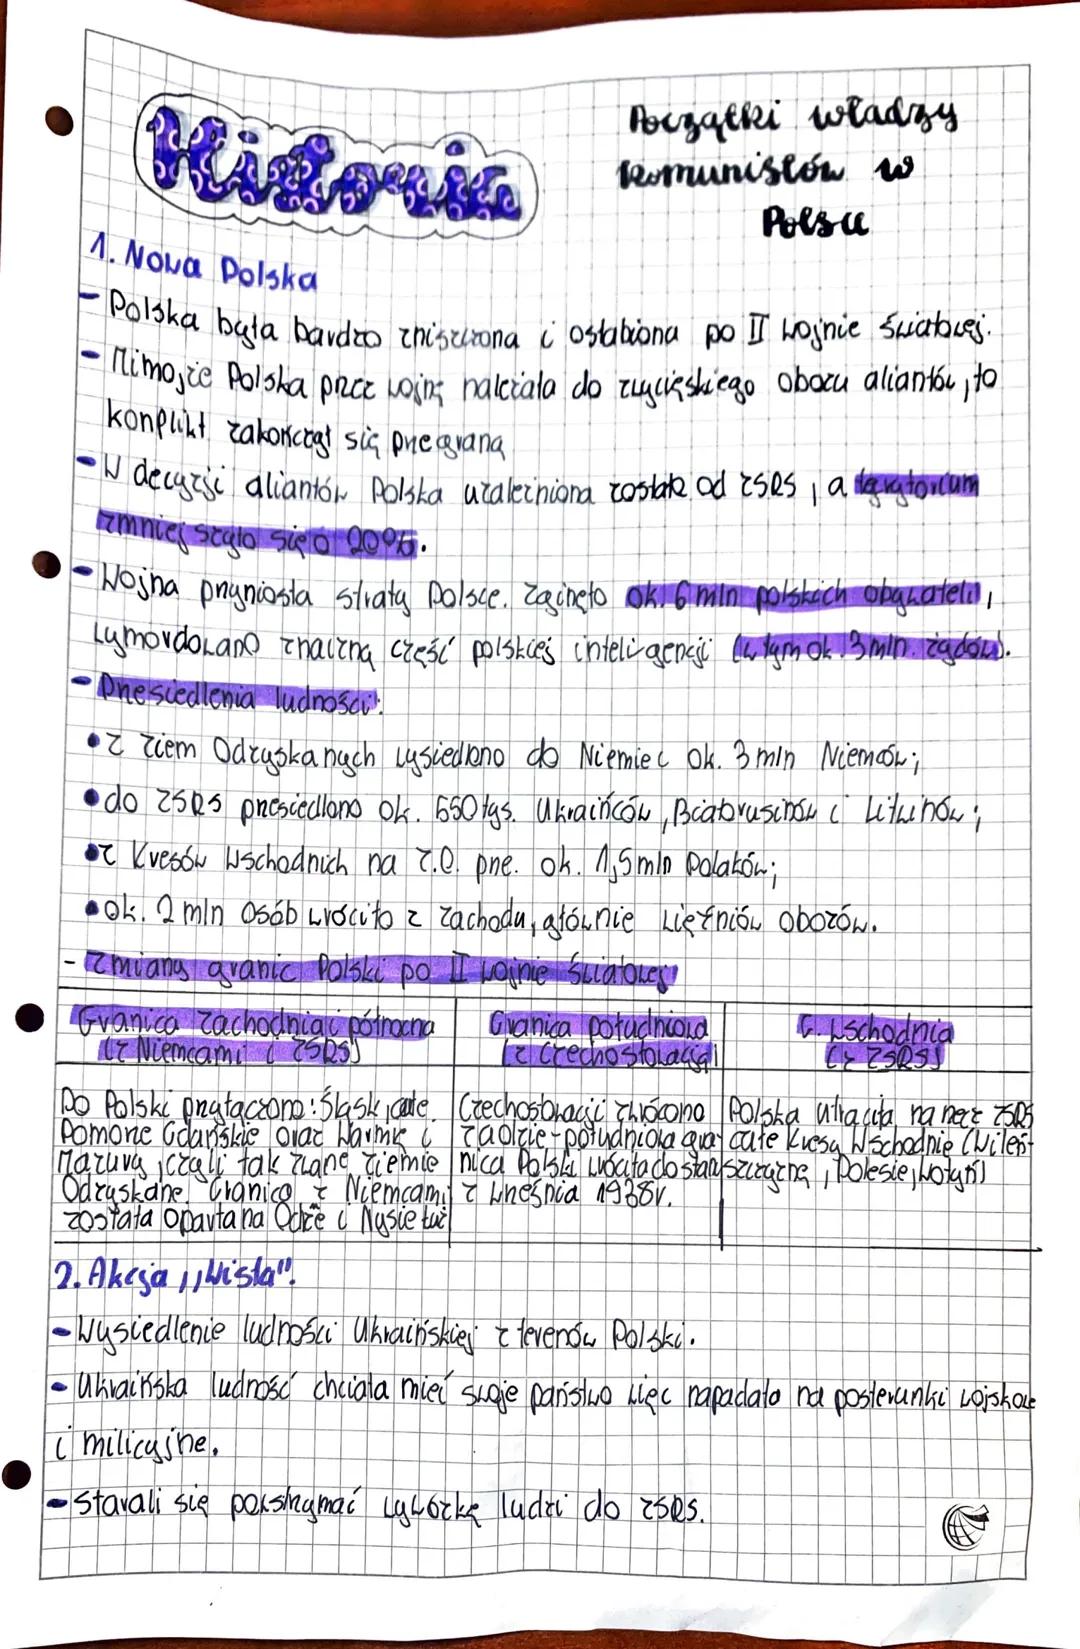 Historia
Początki władzy
komunistów w
Polsce
1. Nowa Polska
- Polska była bardzo zniszczona i osłabiona po II wojnie światowej.
- Mimo, że Polska przez wojnę należała do zwycięskiego obozu aliantów, to
konflikt zakończył się przegraną
- W decyzji aliantów Polska uzależniona została od ZSRS, a terytorium
zmniejszyło się o 20%.
- Wojna przyniosła straty Polsce. Zginęło ok. 6 mln polskich obywateli,
wymordowano znaczną część polskiej inteligencji (w tym ok. 3 mln. żydów).
- Przesiedlenia ludności:
• z ziem Odzyskanych wysiedlono do Niemiec ok. 3 mln Niemców;
• do ZSRS przesiedlono ok. 550 tys. Ukraińców, Białorusinów i Litwinów;
• z Kresów Wschodnich na Z.O. prze. ok. 1,5 mln Polaków;
• ok. 2 mln osób wróciło z zachodu, głównie więźniów obozów.
- Zmiany granic Polski po II wojnie światowej
Granica zachodnia i północna
(z Niemcami i ZSRS)
Do Polski przyłączono: Śląsk, całe
Pomorze Gdańskie oraz Warmię i
Mazury, czyli tak zwane ziemie
Odzyskane. Granica z Niemcami
została oparta na Odrze i Nysie Łuż
Granica południowa
(z Czechosłowacją)
Czechosłowacji zwrócono
Zaolzie - południowa gra-
nica Polski wróciła do stanu
z września 1938r.
G. wschodnia
(z ZSRS)
Polska utraciła na rzecz ZSRS
całe Kresy Wschodnie (Wileń-
szczyznę, Polesie, Wołyń)
2. Akcja ,,Wisła".
- Wysiedlenie ludności Ukraińskiej z terenów Polski.
- Ukraińska ludność chciała mieć swoje państwo więc napadało na posterunki wojskowe
i milicyjne.
- starali się powstrzymać wywózkę ludzi do ZSRS.